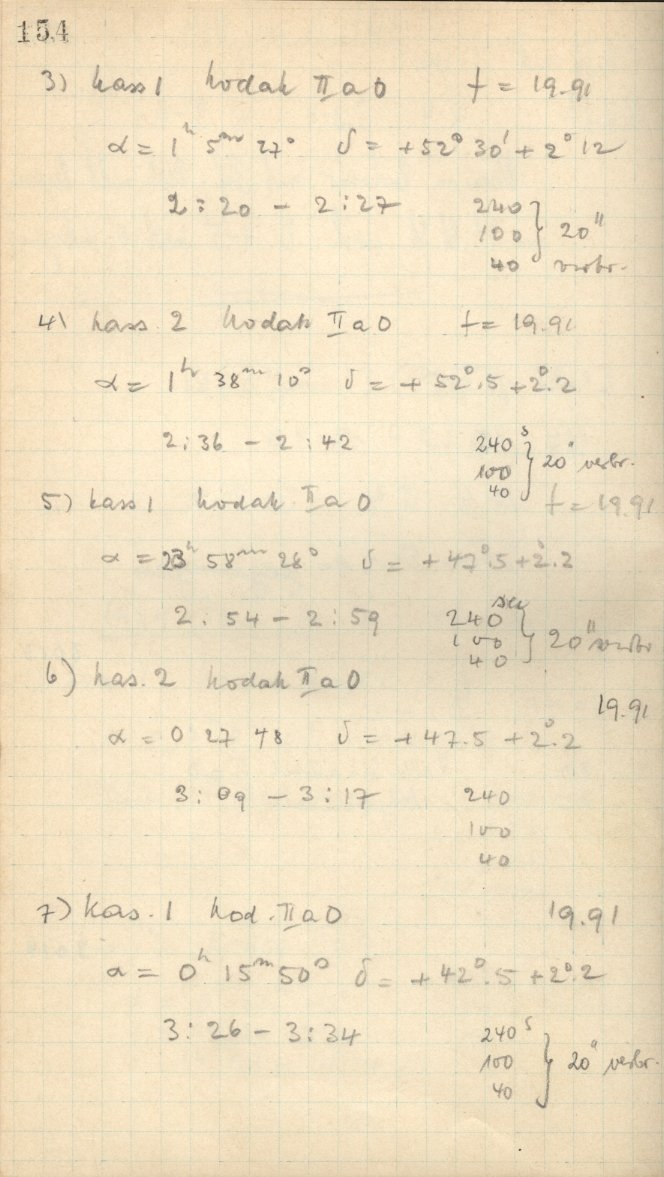 154
3) kass 1 Kodak II a O f = 19.91
α = 1ʰ 5ᵐ 27ˢ δ = +52° 30' + 2° 12
2:20 - 2:27 240
100 } 20"
40 verbr.
4) kass. 2 Kodak II a O f = 19.91
α = 1ʰ 38ᵐ 10ˢ δ = + 52°.5 + 2°.2
2:36 - 2:42 240ˢ
100 } 20" verbr.
40
5) kass 1 Kodak II a O f = 19.91
α = 23ʰ 58ᵐ 28ˢ δ = + 47°.5 + 2°.2
2:54 - 2:59 240 sec
100 } 20" verbr
40
6) kas. 2 Kodak II a O
19.91
α = 0 27 48 δ = + 47.5 + 2°.2
3:09 - 3:17 240
100
40
7) Kas. 1 Kod. II a O 19.91
α = 0ʰ 15ᵐ 50ˢ δ = + 42°.5 + 2°.2
3:26 - 3:34 240ˢ
100 } 20" verbr.
40